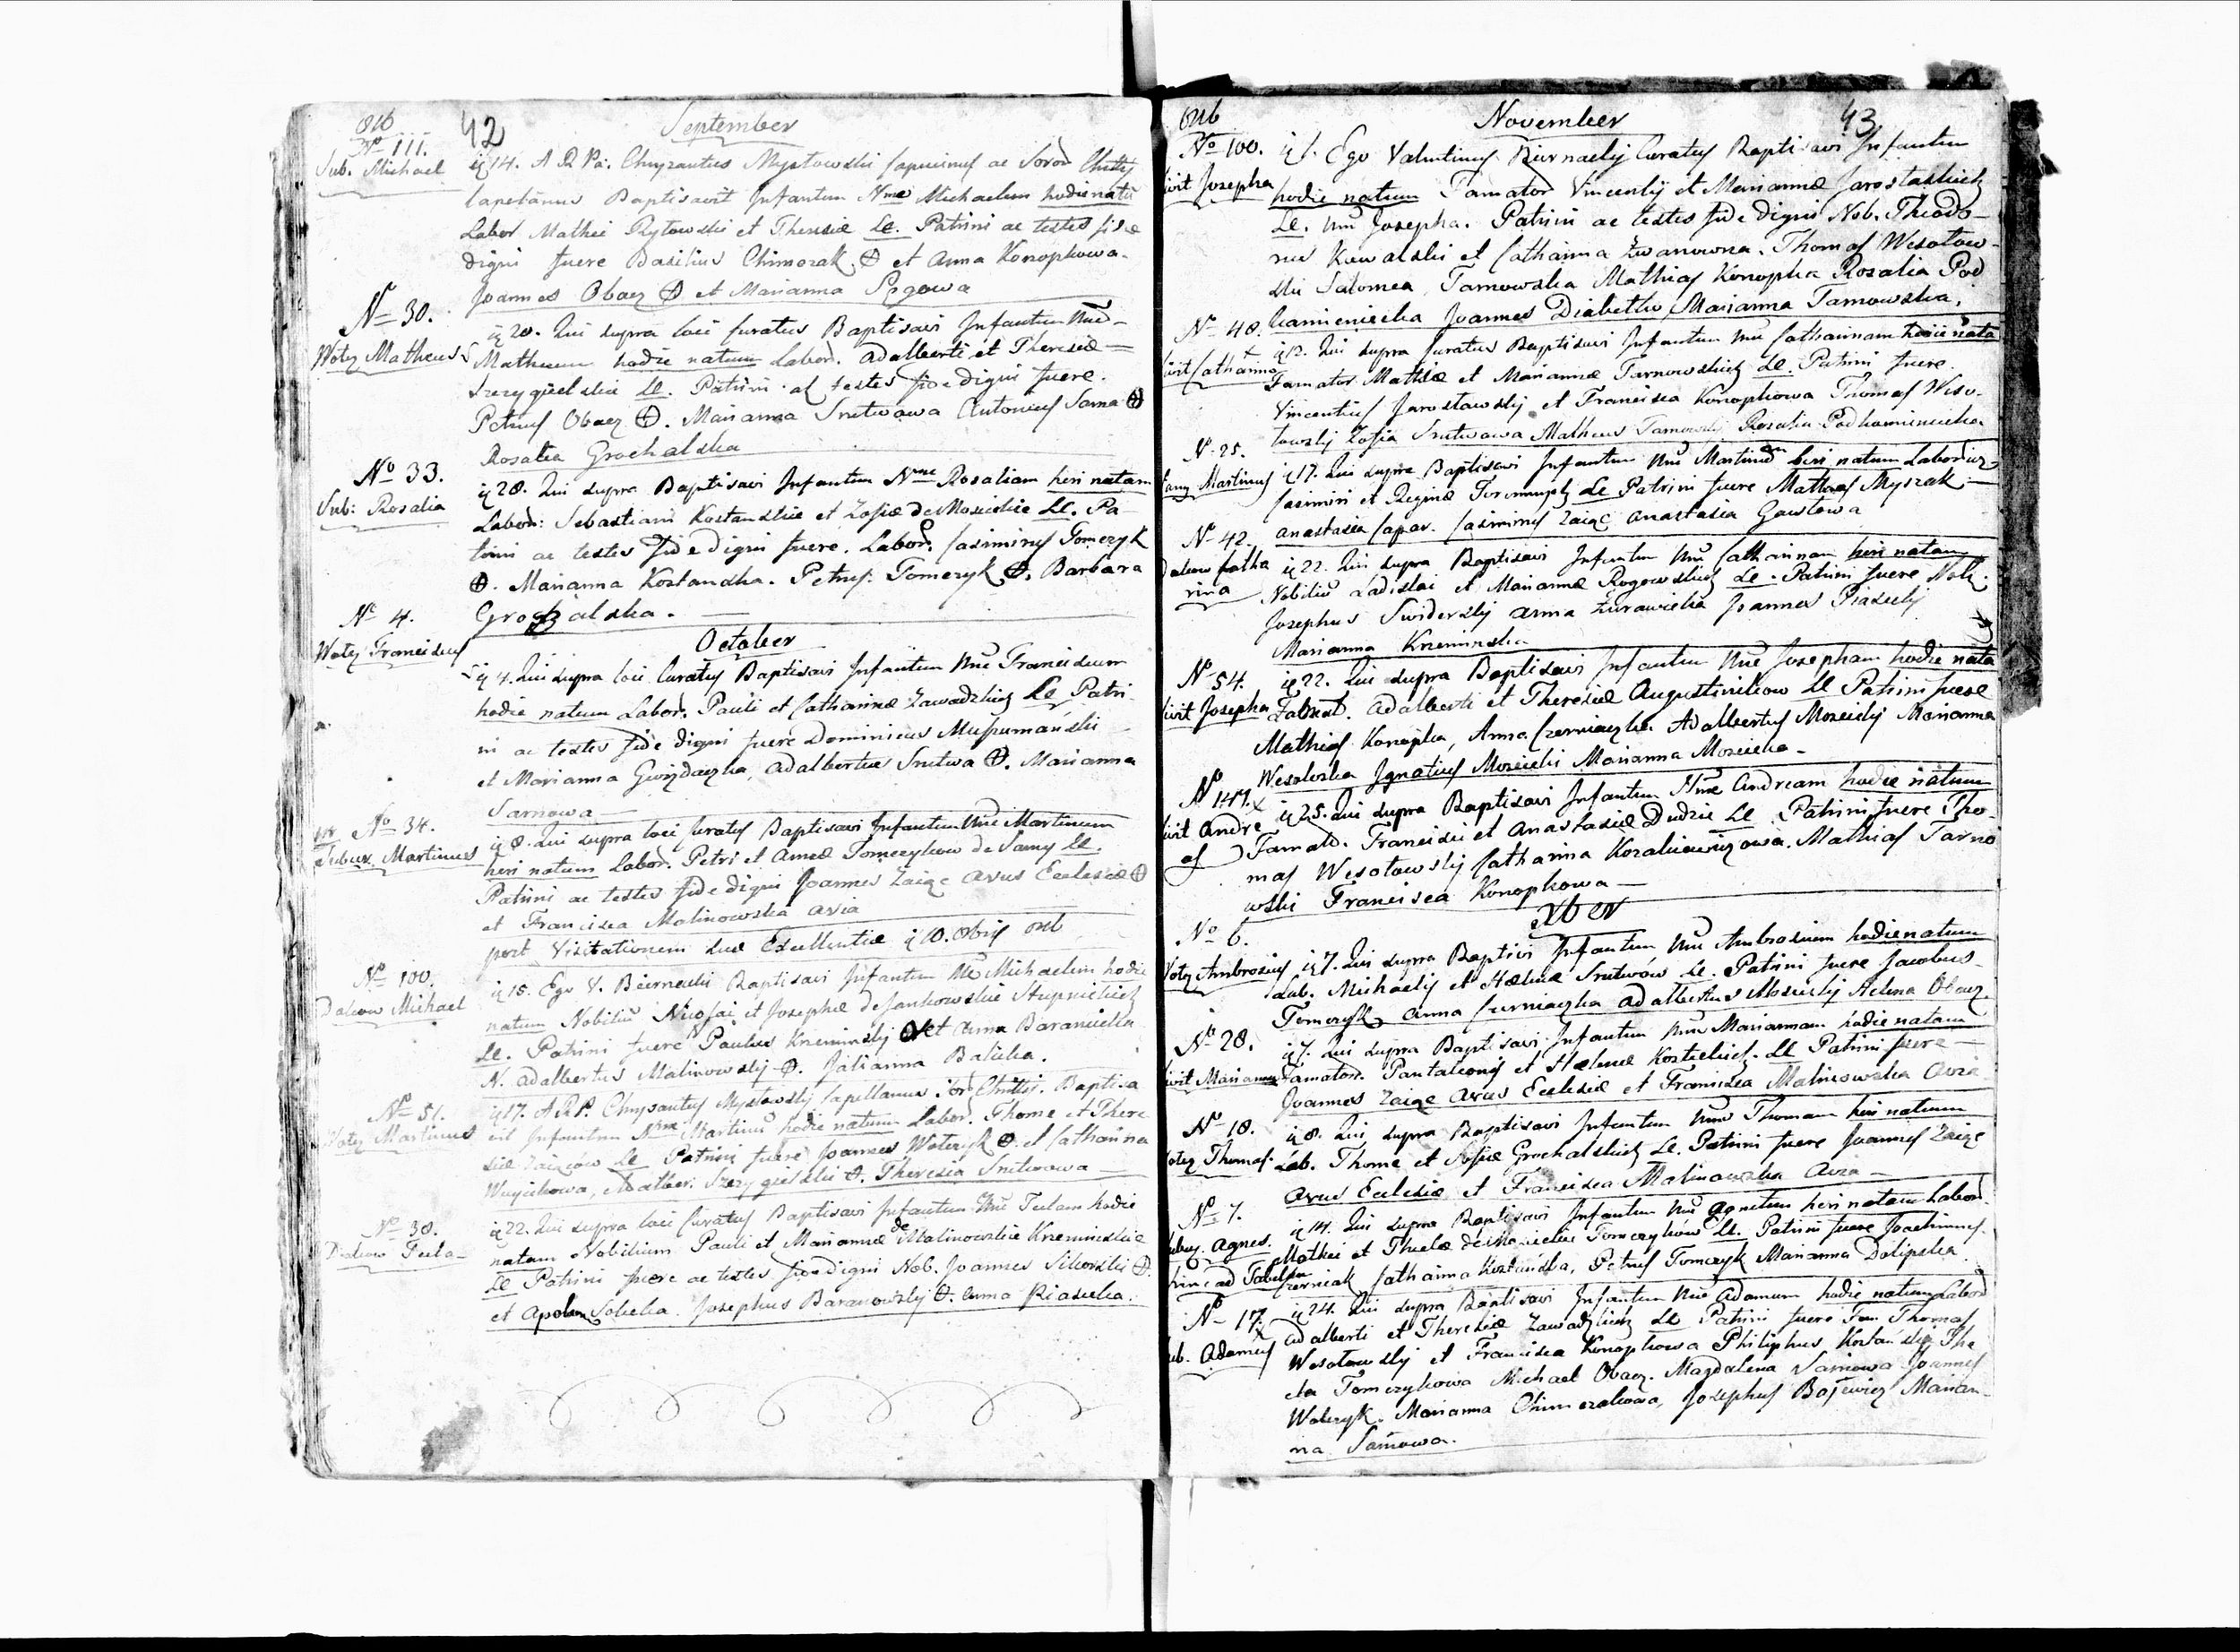 816
42
September
Nº 111.
Sub. Michael
14. A R Pa. Chryzantus Mystowski Capucinus ac Soror Christj
Capelanus Baptisavit Infantem Nme Michaelem hodie natū
Labor Mathei Rytowskie et Theresiæ Le. Patrini ac testes fide
digni fuere Basilius Chimozak et Anna Konopkowa.
Joannes Obacz et Marianna Sęgowa
Nº 30.
Wotez Matheus
20. Qui supra loci Curatus Baptisavi Infantem Nme
Matheum hodie natum Labor. Adalberti et Theresiæ
Szczygielskie Le. Patrini ac testes fide digni fuere.
Petrus Obacz. Marianna Srutwowa Antonius Sarna
Rosalia Grochalska
Nº 33.
Sub: Rosalia
28. Qui supra Baptisavi Infantem Nme Rosaliam heri natam
Labor: Sebastiani Kostanskie et Zofiæ de Moscickie Le. Pa
trini ac testes fide digni fuere. Labor. Casimirus Tomczyk
Marianna Kostandka. Petrus Tomczyk. Barbara
Grochalska.
Nº 4.
Wotez Franciscus
October
4. Qui supra loci Curatus Baptisavi Infantem Nme Franciscum
hodie natum Labor. Pauli et Catharinæ Zawadzkich Le Patri
ni ac testes fide digni fuere Dominicus Musumanski
et Marianna Gwizdaczka, Adalbertus Srutwa. Marianna
Sarnowa
Nº 34.
Martinus
8. Qui supra loci Curatus Baptisavi Infantem Nme Martinum
heri natum Labor. Petri et Annæ Tomczykow de Samy Le.
Patrini ac testes fide digni Joannes Zaiąc avus Ecclesiæ
et Francisca Malinowska avia
post Visitationem suæ Excellentiæ 10. 8bris
Nº 100.
Dalkow Michael
15. Ego V. Biernacki Baptisavi Infantem Nme Michaelem hodie
natum Nobiliū Nicolai et Josephæ de Jankowskie Stupnickich
Le. Patrini fuere Paulus Krzeminskj et Anna Baranicka
N. Adalbertus Malinowskj. Julianna Balicka.
Nº 51.
Wotez Martinus
17. A R P. Chrysantus Mystowskj Capellanus Sor Christj. Baptisa
vit Infantem Nme Martinū hodie natum Labor. Thome et There
siæ Zaiącow Le Patrini fuere Joannes Woterzyk et Catharina
Wuycikowa, Adalber. Szczygielski. Theresia Srutwowa
Nº 38.
Dalkow Tecla
22. Qui supra loci Curatus Baptisavi Infantem Nme Teclam hodie
natam Nobilium Pauli et Mariannæ de Malinowskie Krzeminskie
Le Patrini fuere ac testes fide digni Nob. Joannes Sikorski
et Apolon Sobicka. Josephus Baranowskj. Anna Piasecka.
816
November
43
Nº 100.
Josepha
1. Ego Valentinus Biernackj Curatus Baptisavi Infantem
hodie natum Famator Vincentij et Mariannæ Jarostawskich
Le. Nme Josepha. Patrini ac testes fide digni Nob. Theodo-
rus Kowalski et Catharina Zwanowna. Thomas Wesotow-
ski Salomea Tarnowska Mathias Konopka Rosalia Pod
kamieniecka Joannes Diabetko Marianna Tarnowska.
Nº 48.
Catharina
12. Qui supra Curatus Baptisavi Infantem Nme Catharinam hodie nata
Famator Mathiæ et Mariannæ Tarnowskich Le. Patrini fuere.
Vincentius Jarostawskj et Francisca Konopkowa Thomas Weso-
towskj Zofia Srutwowa Matheus Tarnowskj Rosalia Podkamieniecka
Nº 25.
Martinus
17. Qui supra Baptisavi Infantem Nme Martinum heri natum Laborios
Casimiri et Reginæ Le Patrini fuere Mathias Myszak
Anastasia Capar. Casimirus Zaiąc Anastasia Gawtowa
Nº 42.
Dalkow Catha
rina
22. Qui supra Baptisavi Infantem Nme Catharinam heri natam
Nobiliū Ladislai et Mariannæ Rogowskich Le. Patrini fuere Nob.
Josephus Swiderskj Anna Zurawicka Joannes Piaseckj
Marianna Krzeminska
Nº 54.
Josepha
22. Qui supra Baptisavi Infantem Nme Josepham hodie nata
Labor. Adalberti et Theresiæ Augustinikow Le Patrini fuere
Mathias Konopka, Anna Czerniaczka Adalbertus Moscickj Marianna
Wesolowska Ignatius Moscicki Marianna Moscicka
Nº 141.
Andre
as
25. Qui supra Baptisavi Infantem Nme Andream hodie natum
Famat. Francisci et Anastasiæ Dudzie Le. Patrini fuere Tho-
mas Wesotowskj Catharina Kozakiewiczowa. Mathias Tarno
wski Francisca Konopkowa
Xber
Nº 6.
Wotez Ambrosius
7. Qui supra Baptisavi Infantem Nme Ambrosium hodie natum
Lab. Michaelis et Helenæ Srutwów Le. Patrini fuere Jacobus
Tomczyk Anna Czerniaczka Adalbertus Moscickj Helena Obacz.
Nº 28.
Marianna
7. Qui supra Baptisavi Infantem Nme Mariannam hodie natam
Famator. Pantaleonis et Helenæ Kostickich. Le Patrini fuere
Joannes Zaiąc Avus Ecclesiæ et Francisca Malinowska Avia
Nº 18.
Wotez Thomas.
8. Qui supra Baptisavi Infantem Nme Thomam heri natum
Lab. Thome et Sofiæ Grochalskich Le Patrini fuere Joannes Zaiąc
Avus Ecclesiæ et Francisca Malinowska Avia
Nº 7.
Agnes.
14. Qui supra Baptisavi Infantem Nme Agnetem heri natam Labor.
Mathei et Theclæ de Tomczyków Le. Patrini fuere Joachimus
Czerniak Catharina Kostanska, Petrus Tomczyk Marianna Dolipska
Nº 17.
Sub. Adamus
24. Qui supra Baptisavi Infantem Nme Adamum hodie natum Labor
Adalberti et Theresiæ Zawadzkich Le Patrini fuere Fam Thomas
Wesotowskj et Francisca Konopkowa Philiphus Kostanskj The
cla Tomczykowa Michael Obacz. Magdalena Sarnowa Joannes
Woterzyk. Marianna Chimozakowa, Josephus Bajewicz Marian-
na Sarnowa.